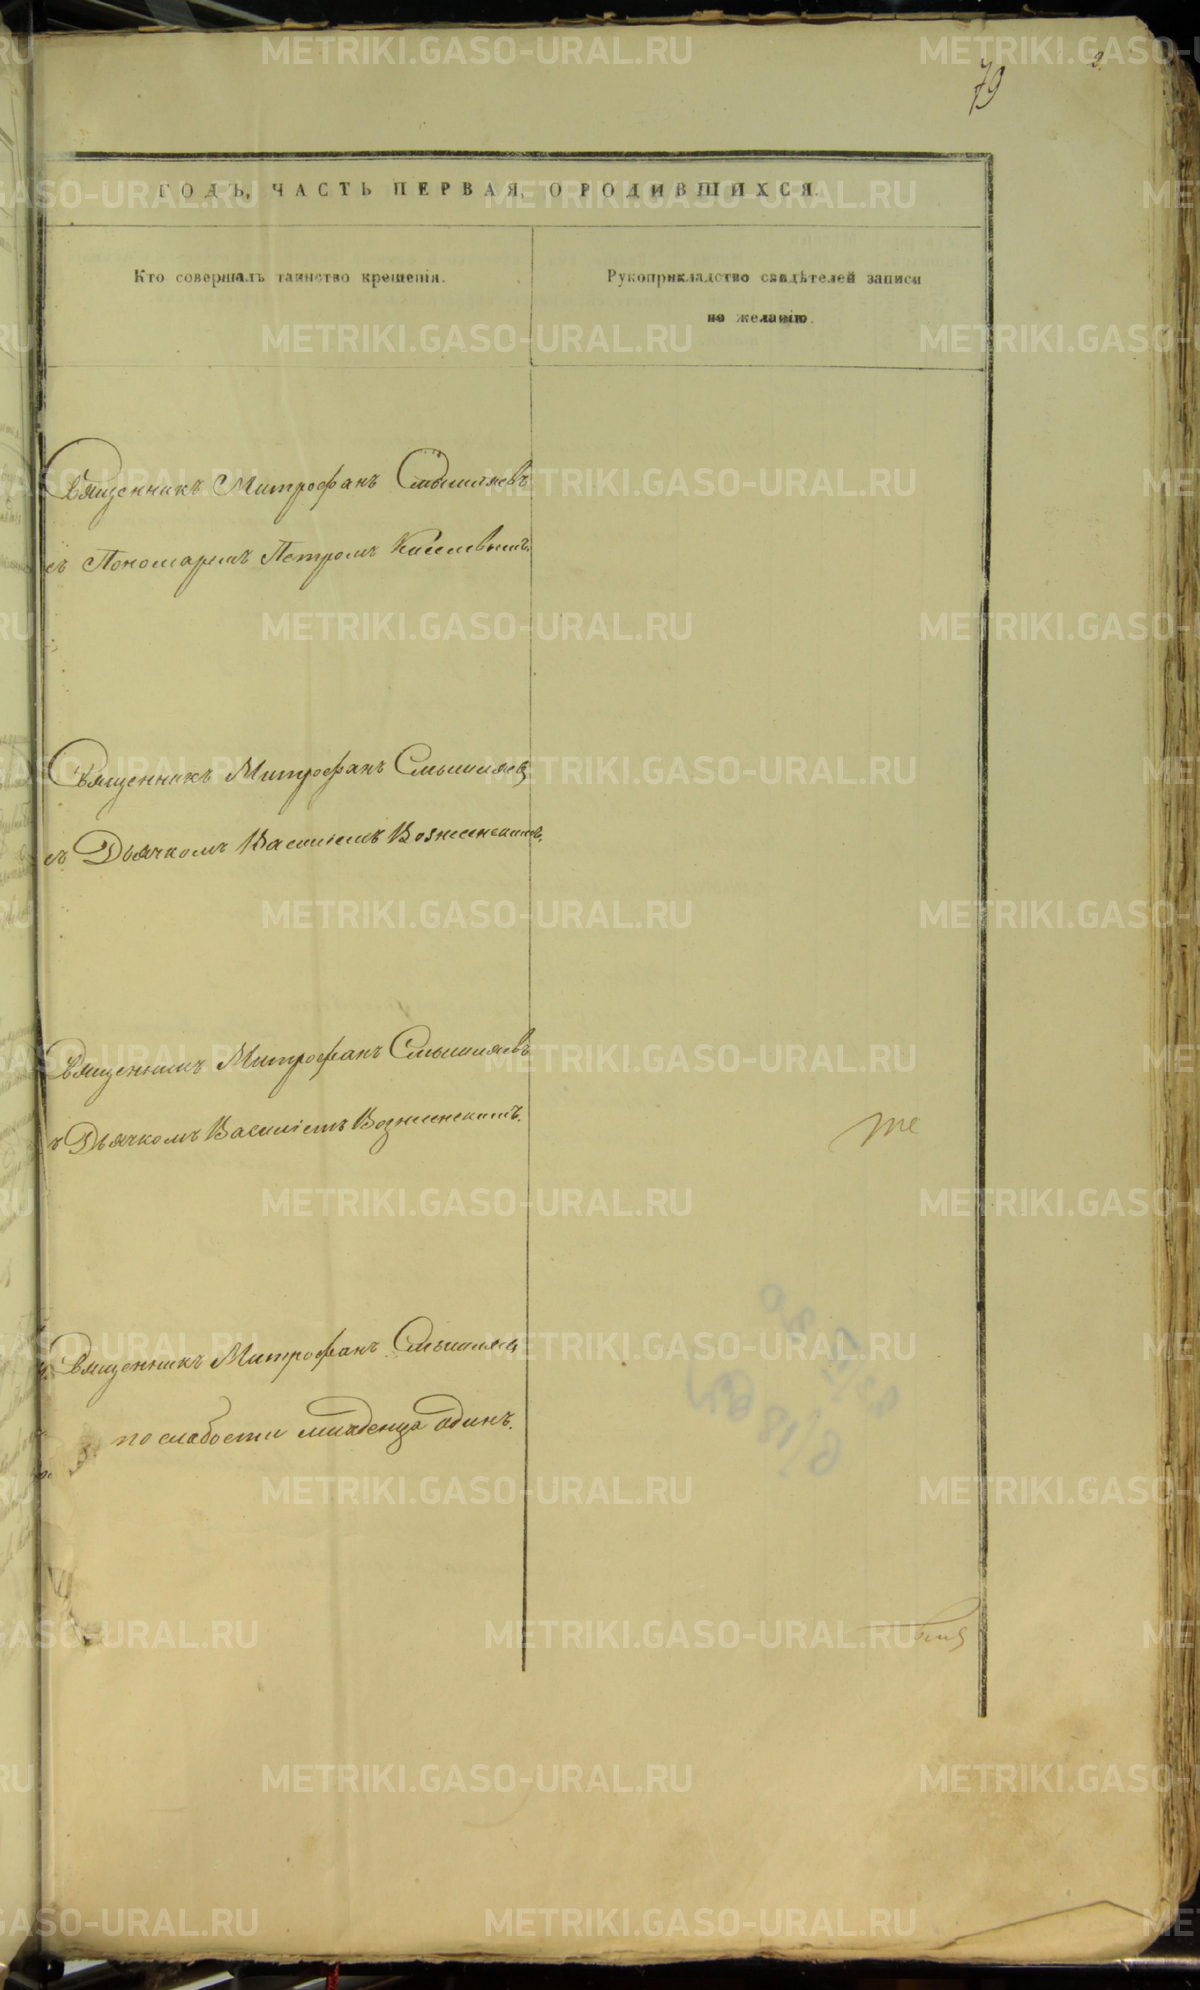 79
2.
ГОДЪ, ЧАСТЬ ПЕРВАЯ, О РОДИВШИХСЯ.
Кто совершалъ таинство крещенія.
Рукоприкладство свидѣтелей записи
по желанію.
Священникъ Митрофанъ Смышляевъ
съ Пономаремъ Петромъ Киселевымъ.
Священникъ Митрофанъ Смышляевъ
съ Дьячкомъ Василіемъ Вознесенскимъ.
Священникъ Митрофанъ Смышляевъ
съ Дьячкомъ Василіемъ Вознесенскимъ.
Священникъ Митрофанъ Смышляевъ
по слабости младенца одинъ.
METRIKI.GASO-URAL.RU